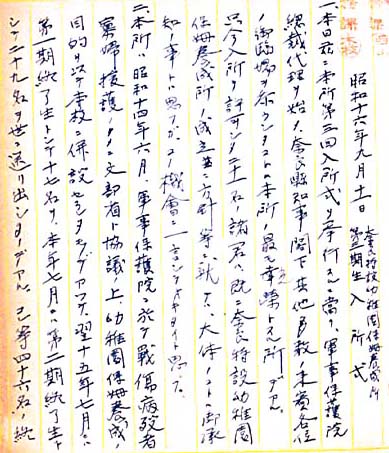 昭和十六年九月十一日
奈良特設幼稚園保姆養成所
第三期生入所式
一、本日茲ニ本所第三回入所式ヲ挙行スルニ當リ、軍事保護院
總裁代理ヲ始メ、奈良縣知事閣下其他多数ノ来賓各位
ノ御臨場ヲ辱ウシタコトハ本所ノ最モ幸榮トスル所デアル。
只今入所ヲ許可シタ二十一名ノ諸君ハ、既ニ奈良特設幼稚園
保姆養成所ノ成立並ニ方針等ニ就テハ、大体ノコトハ御承
知ノ事トハ思フガ、コノ機會ニ一言シテオキタイト思フ。
二、本所ハ昭和十四年六月、軍事保護院ニ於テ戰傷病歿者
寡婦援護ノタメ文部省ト協議ノ上幼稚園保姆養成ノ
目的ヲ以テ本校ニ併設セシメタモノデアツテ、翌十五年七月ニハ
第一期終了生トシテ十七名ヲ、本年七月ニハ第二期終了生ト
シテ二十九名ヲ世ニ送リ出シタノデアル。已等四十六名ノ終